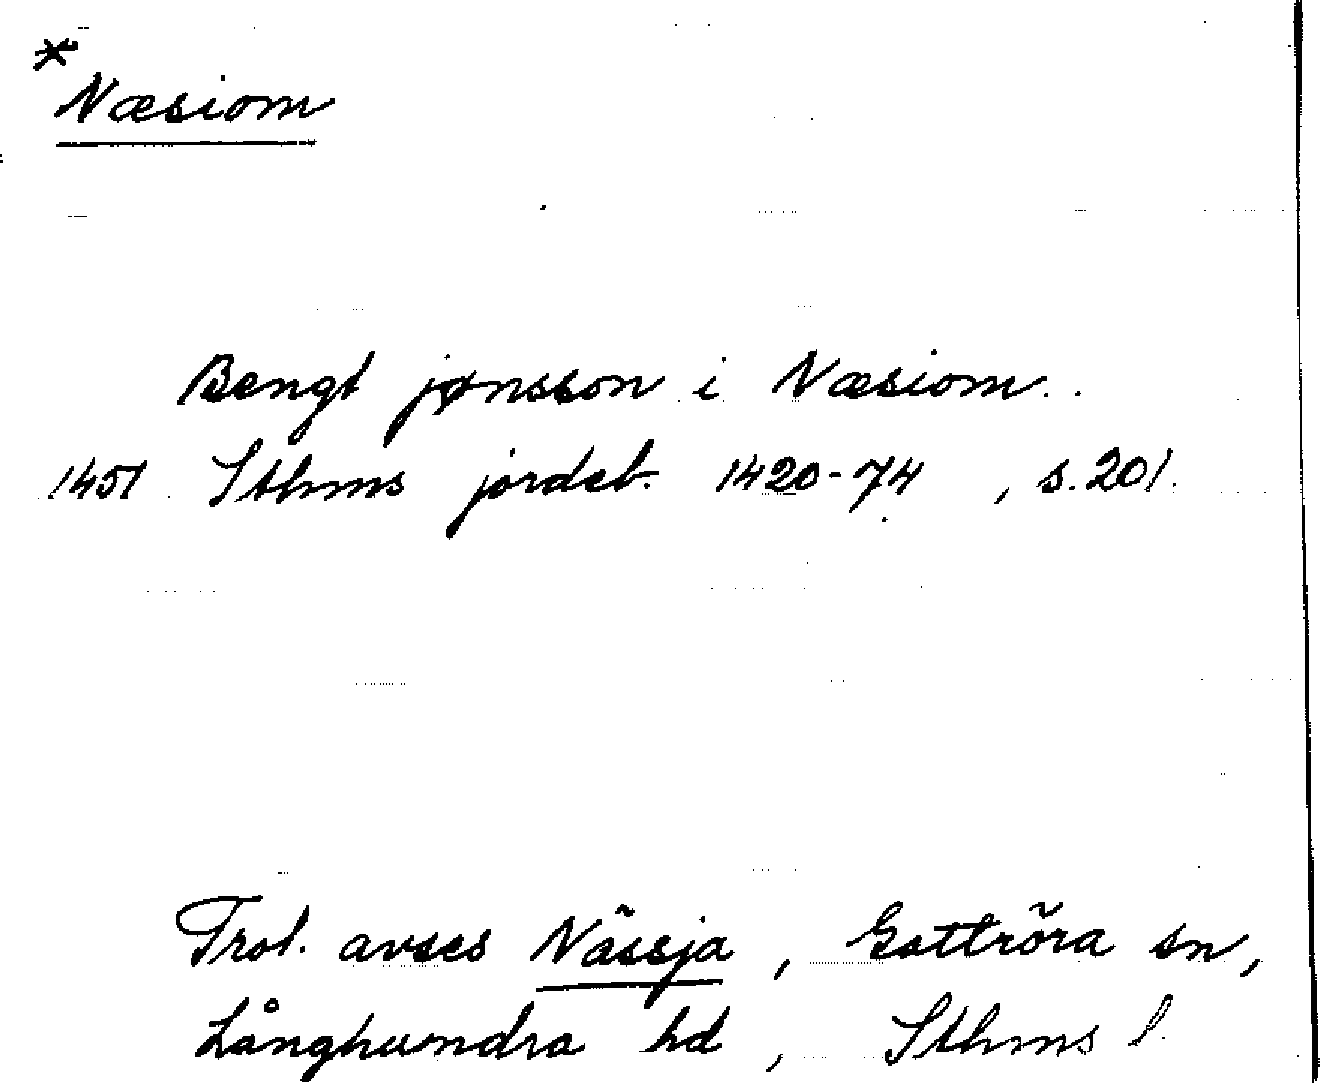 * Næsiom
Bengt jønsson i Næsiom..
1451 Sthms jordeb. 1420-74, s. 201.
Trol. avses Nässja, Gottröra sn,
Långhundra hd, Sthms l.